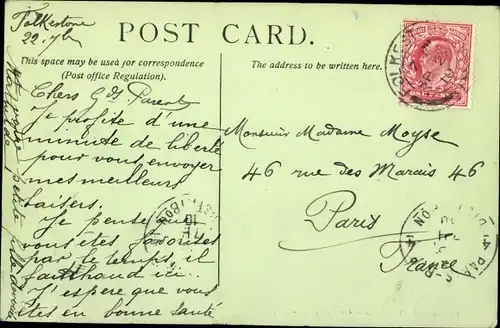 Folkestone
POST CARD.
This space may be used for correspondence
(Post office Regulation).
The address to be written here.
Chers Gds Parents
Je profite d'une
minute de liberté
pour vous envoyer
mes meilleurs
baisers.
Je pense que
vous êtes favorisés
par le temps, il
fait chaud ici...
J'espère que vous
êtes en bonne santé
Votre petite fille
Monsieur Madame Moyse
46 rue des Marais 46
Paris
France